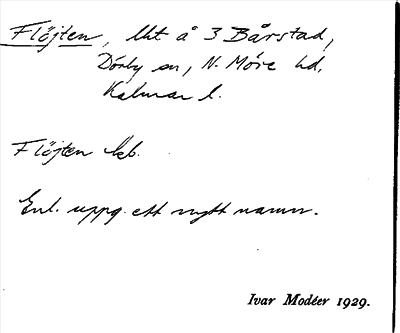 Flöjten, lht å 3 Bårstad,
Dörby sn, N. Möre hd,
Kalmar l.
Flöjten kb.
Enl. uppg. ett nytt namn.
Ivar Modéer 1929.